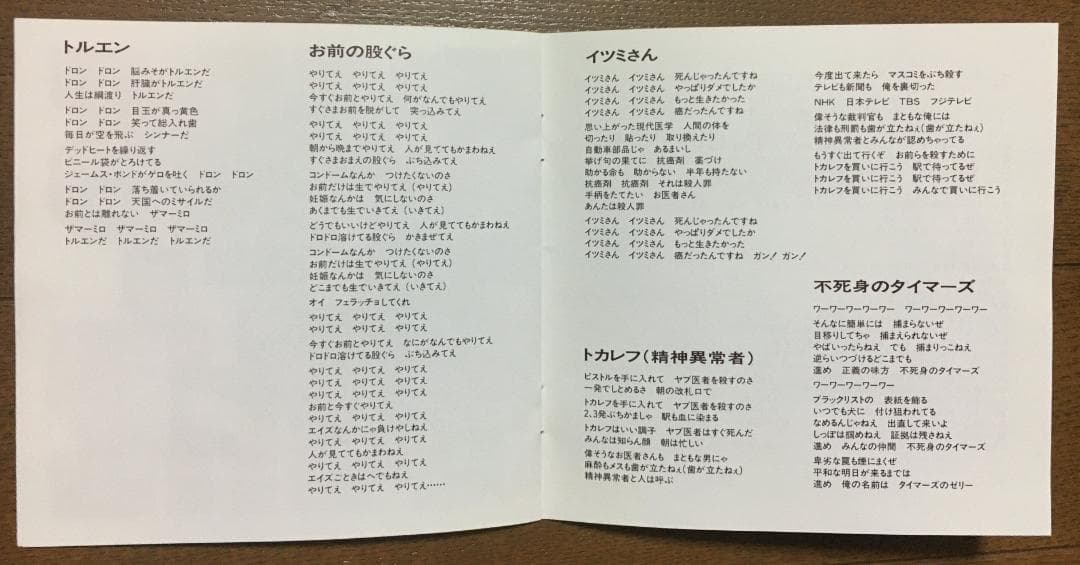 トルエン
ドロン　ドロン　脳みそがトルエンだ
ドロン　ドロン　肝臓がトルエンだ
人生は綱渡り　トルエンだ
ドロン　ドロン　目玉が真っ黄色
ドロン　ドロン　笑って総入れ歯
毎日が空を飛ぶ　シンナーだ
デッドヒートを繰り返す
ビニール袋がとろけてる
ジェームス・ボンドがゲロを吐く　ドロン　ドロン
ドロン　ドロン　落ち着いていられるか
ドロン　ドロン　天国へのミサイルだ
お前とは離れない　ザマーミロ
ザマーミロ　ザマーミロ　ザマーミロ
トルエンだ　トルエンだ　トルエンだ
お前の股ぐら
やりてえ　やりてえ　やりてえ
やりてえ　やりてえ　やりてえ
今すぐお前とやりてえ　何がなんでもやりてえ
すぐさまお前を脱がして　突っ込みてえ
やりてえ　やりてえ　やりてえ
やりてえ　やりてえ　やりてえ
朝から晩までやりてえ　人が見ててもかまわねえ
すぐさまおまえの股ぐら　ぶち込みてえ
コンドームなんか　つけたくないのさ
お前だけは生でやりてえ（やりてえ）
妊娠なんかは　気にしないのさ
あくまでも生でいきてえ（いきてえ）
どうでもいいけどやりてえ　人が見ててもかまわねえ
ドロドロ溶けてる股ぐら　かきまぜてえ
コンドームなんか　つけたくないのさ
お前だけは生でやりてえ（やりてえ）
妊娠なんかは　気にしないのさ
どこまでも生でいきてえ（いきてえ）
オイ　フェラッチョしてくれ
やりてえ　やりてえ　やりてえ
やりてえ　やりてえ　やりてえ
今すぐお前とやりてえ　なにがなんでもやりてえ
ドロドロ溶けてる股ぐら　ぶち込みてえ
やりてえ　やりてえ　やりてえ
やりてえ　やりてえ　やりてえ
やりてえ　やりてえ　やりてえ
お前と今すぐやりてえ
やりてえ　やりてえ　やりてえ
エイズなんかにゃ負けやしねえ
やりてえ　やりてえ　やりてえ
人が見ててもかまわねえ
やりてえ　やりてえ　やりてえ
エイズごときはへでもねえ
やりてえ　やりてえ　やりてえ……
イツミさん
イツミさん　イツミさん　死んじゃったんですね
イツミさん　イツミさん　やっぱりダメでしたか
イツミさん　イツミさん　もっと生きたかった
イツミさん　イツミさん　癌だったんですね
思い上がった現代医学　人間の体を
切ったり　貼ったり　取り換えたり
自動車部品じゃ　あるまいし
挙げ句の果てに　抗癌剤　薬づけ
助かる命も　助からない　半年も持たない
抗癌剤　抗癌剤　それは殺人罪
手柄をたてたい　お医者さん
あんたは殺人罪
イツミさん　イツミさん　死んじゃったんですね
イツミさん　イツミさん　やっぱりダメでしたか
イツミさん　イツミさん　もっと生きたかった
イツミさん　イツミさん　癌だったんですね　ガン！ガン！
トカレフ（精神異常者）
ピストルを手に入れて　ヤブ医者を殺すのさ
一発でしとめるさ　朝の改札口で
トカレフを手に入れて　ヤブ医者を殺すのさ
2、3発ぶちかましゃ　駅も血に染まる
トカレフはいい調子　ヤブ医者はすぐ死んだ
みんなは知らん顔　朝は忙しい
偉そうなお医者さんも　まともな男にゃ
麻酔もメスも歯が立たねぇ（歯が立たねぇ）
精神異常者と人は呼ぶ
今度出て来たら　マスコミをぶち殺す
テレビも新聞も　俺を裏切った
NHK　日本テレビ　TBS　フジテレビ
偉そうな裁判官も　まともな俺には
法律も刑罰も歯が立たねぇ（歯が立たねぇ）
精神異常者とみんなが認めちゃってる
もうすぐ出て行くぞ　お前らを殺すために
トカレフを買いに行こう　駅で待ってるぜ
トカレフを買いに行こう　駅で待ってるぜ
トカレフを買いに行こう　みんなで買いに行こう
不死身のタイマーズ
ワーワーワーワーワー　ワーワーワーワーワー
そんなに簡単には　捕まらないぜ
目移りしてちゃ　捕まえられないぜ
やばいったらねえ　でも　捕まりっこねえ
逆らいつづけるどこまでも
進め　正義の味方　不死身のタイマーズ
ワーワーワーワーワー
ブラックリストの　表紙を飾る
いつでも犬に　付け狙われてる
なめるんじゃねえ　出直して来いよ
しっぽは掴めねえ　証拠は残さねえ
進め　みんなの仲間　不死身のタイマーズ
卑劣な罠も煙にまくぜ
平和な明日が来るまでは
進め　俺の名前は　タイマーズのゼリー